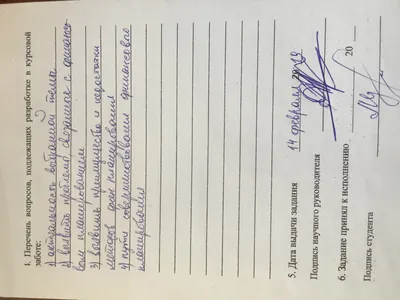 4. Перечень вопросов, подлежащих разработке в курсовой
работе:
1) актуальность выбранной темы
2) выявить проблемы, связанные с финансо-
вым планированием
3) выявить преимущества и недостатки
планирования
4) пути совершенствования финансового
планирования
5. Дата выдачи задания 14 февраля 2019
Подпись научного руководителя
6. Задание принял к исполнению 20
Подпись студента